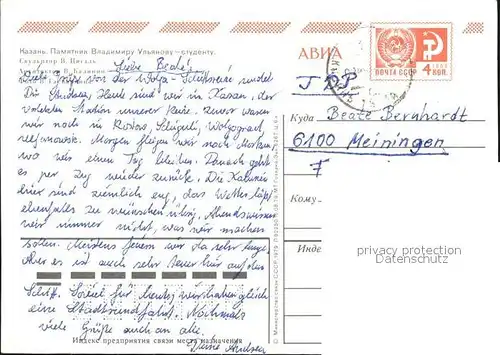 Казань. Памятник Владимиру Ульянову—студенту.
Скульптор В. Цигаль
Liebe Beate!
Viele Grüße von der Wolga-Schiffsreise sendet
Dir Andrea. Heute sind wir in Kasan, der
vorletzten Station unserer Reise. Zuvor waren
wir noch in Rostow, Wolgograd,
Uljanowsk. Morgen fliegen wir nach Moskau,
wo wir einen Tag bleiben. Danach geht
es per Zug wieder zurück. Die Kabinen
hier sind ziemlich eng, das Wetter läßt
ebenfalls zu wünschen übrig. Abends wissen
wir nimmer nicht, was wir machen
sollen. Meistens feiern wir da sehr lange.
Aber es ist auch sehr teuer hier auf dem
Schiff. Soviel für heute, wir haben gleich
eine Stadtrundfahrt. Nochmals
viele Grüße auch an alle.
Deine Andrea
Индекс предприятия связи места назначения
АВИА
ПОЧТА СССР
4 КОП
Куда
Beate Bernhardt
6100 Meiningen
Кому
Инде
privacy protection
Datenschutz